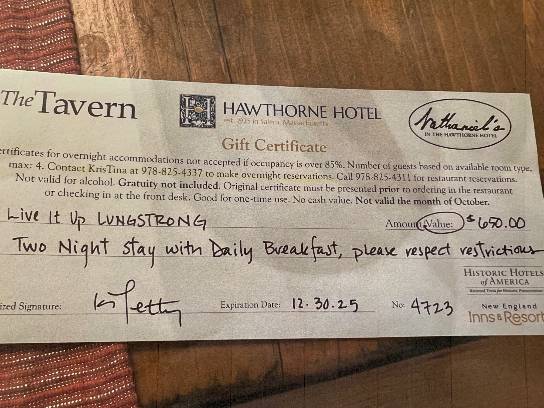 The Tavern
HAWTHORNE HOTEL
est. 1925 in Salem, Massachusetts
Nathaniel's
IN THE HAWTHORNE HOTEL
Gift Certificate
ertificates for overnight accommodations not accepted if occupancy is over 85%. Number of guests based on available room type,
max: 4. Contact KrisTina at 978-825-4337 to make overnight reservations. Call 978-825-4311 for restaurant reservations.
Not valid for alcohol. Gratuity not included. Original certificate must be presented prior to ordering in the restaurant
or checking in at the front desk. Good for one-time use. No cash value. Not valid the month of October.
Live It Up LUNGSTRONG
Amount/Value: $650.00
Two Night Stay with Daily Breakfast, please respect restrictions
HISTORIC HOTELS
of AMERICA
National Trust for Historic Preservation
ized Signature:
Expiration Date: 12.30.25
No: 4723
New England
Inns & Resort